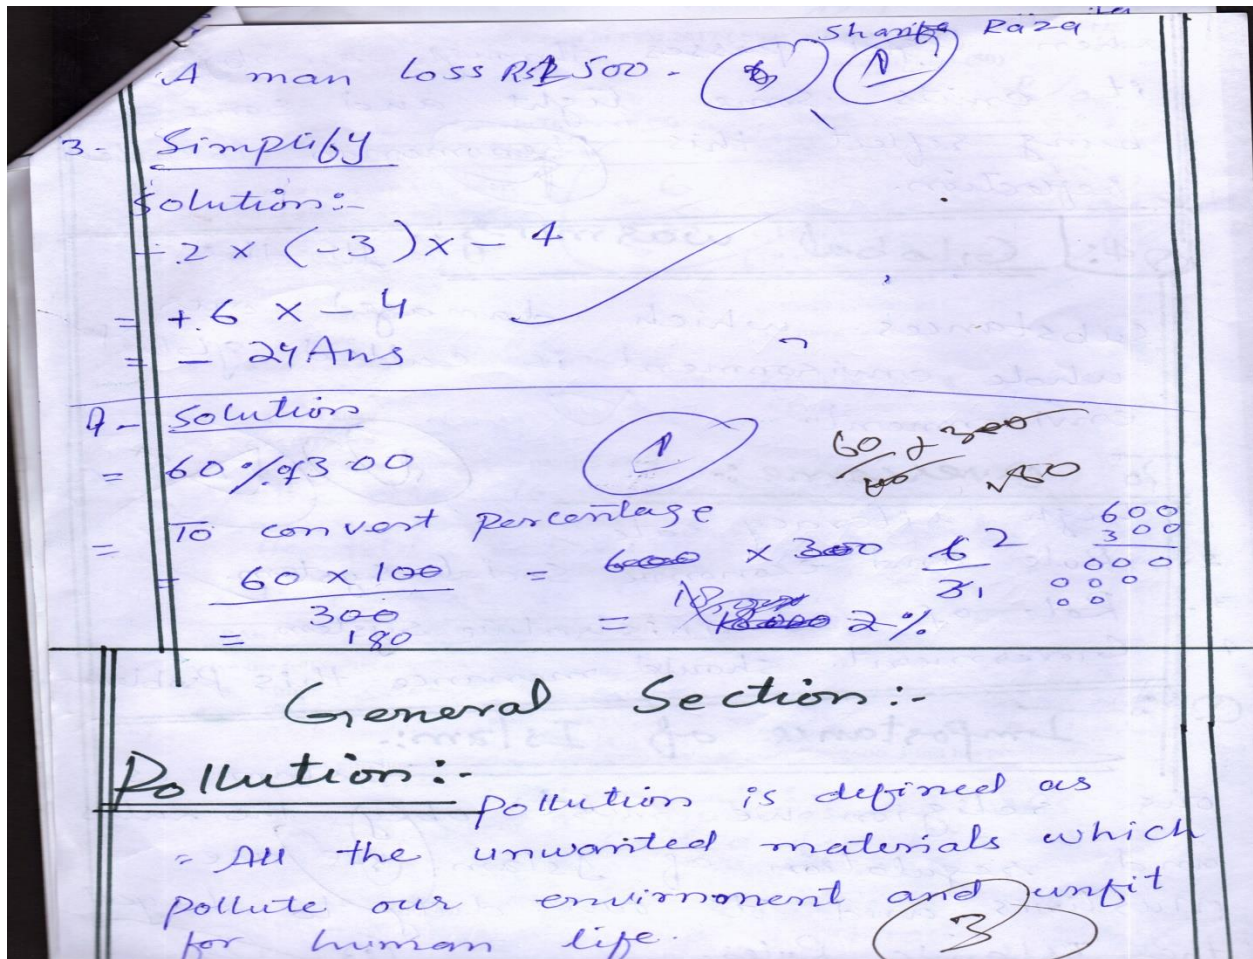 Raza
A man loss Rs 500.
1
3- Simplify
Solution:-
- 2 x (-3) x - 4
= + 6 x - 4
= - 24 Ans
4- Solution
= 60% of 300
1
60 x 300
= To convert percentage
600
300
000
000
00
= 60 x 100 = 6000 x 300 6 2
300 3 1
= 180 = 2%
General Section:-
Pollution:-
pollution is defined as
= All the unwanted materials which
pollute our envirnoment and unfit
for human life.
3